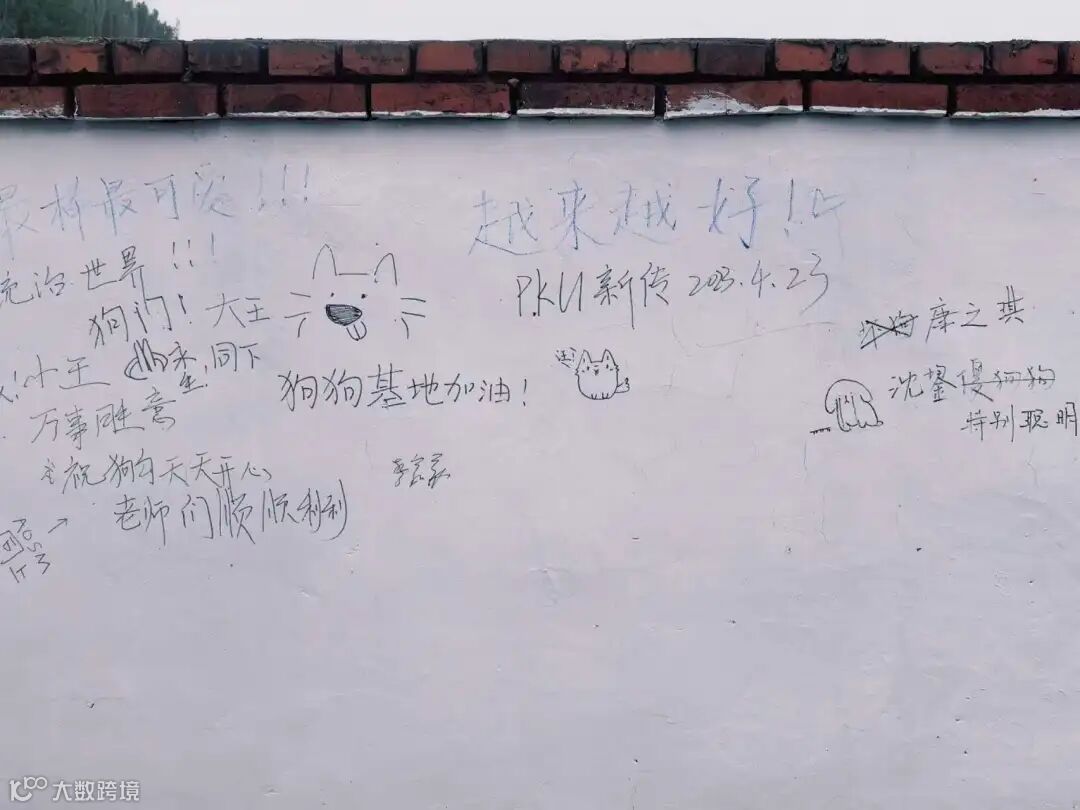 最棒最可爱!!!
统治世界!!!
狗门! 大王
小王
同下
万事胜意
祝狗勾天天开心
老师们顺顺利利
越来越好!
P.K.U 新传 2023.4.23
狗狗基地加油!
汪!
康之淇
沈鋆傻狗狗
特别聪明
大数跨境